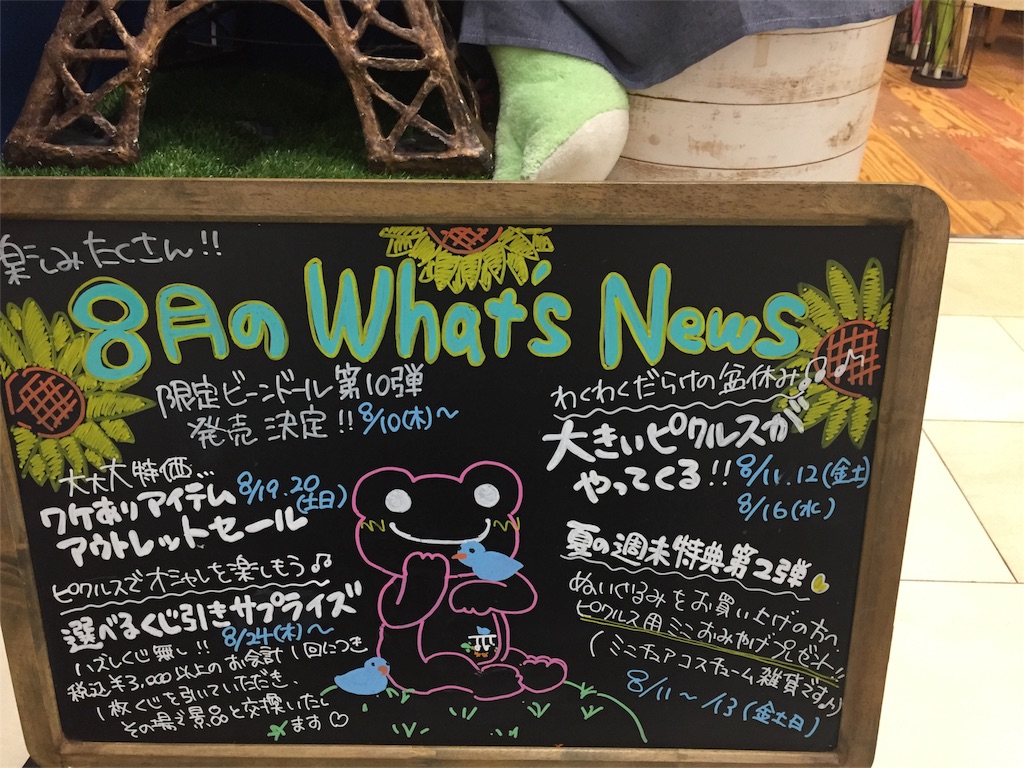 楽しみたくさん!!
8月の What's News
限定ビーンドール第10弾
発売 決定!! 8/10(木)~
大大大特価...
ワケありアイテム 8/19.20(土日)
アウトレットセール
ピクルスでオシャレを楽しもう♫
選べるくじ引きサプライズ
8/24(木)~
ハズレくじ無し!!
税込¥3,000以上のお会計1回につき
1枚くじを引いていただき、
その場で景品と交換いたし
ます♡
わくわくだらけの盆休み♪♪
大きいピクルスが
やってくる!! 8/11.12(金土)
8/16(水)
夏の週末特典第2弾
ぬいぐるみをお買い上げの方へ
ピクルス用ミニおみやげプレゼント!!
(ミニチュアコスチューム雑貨です♪)
8/11~13(金土日)